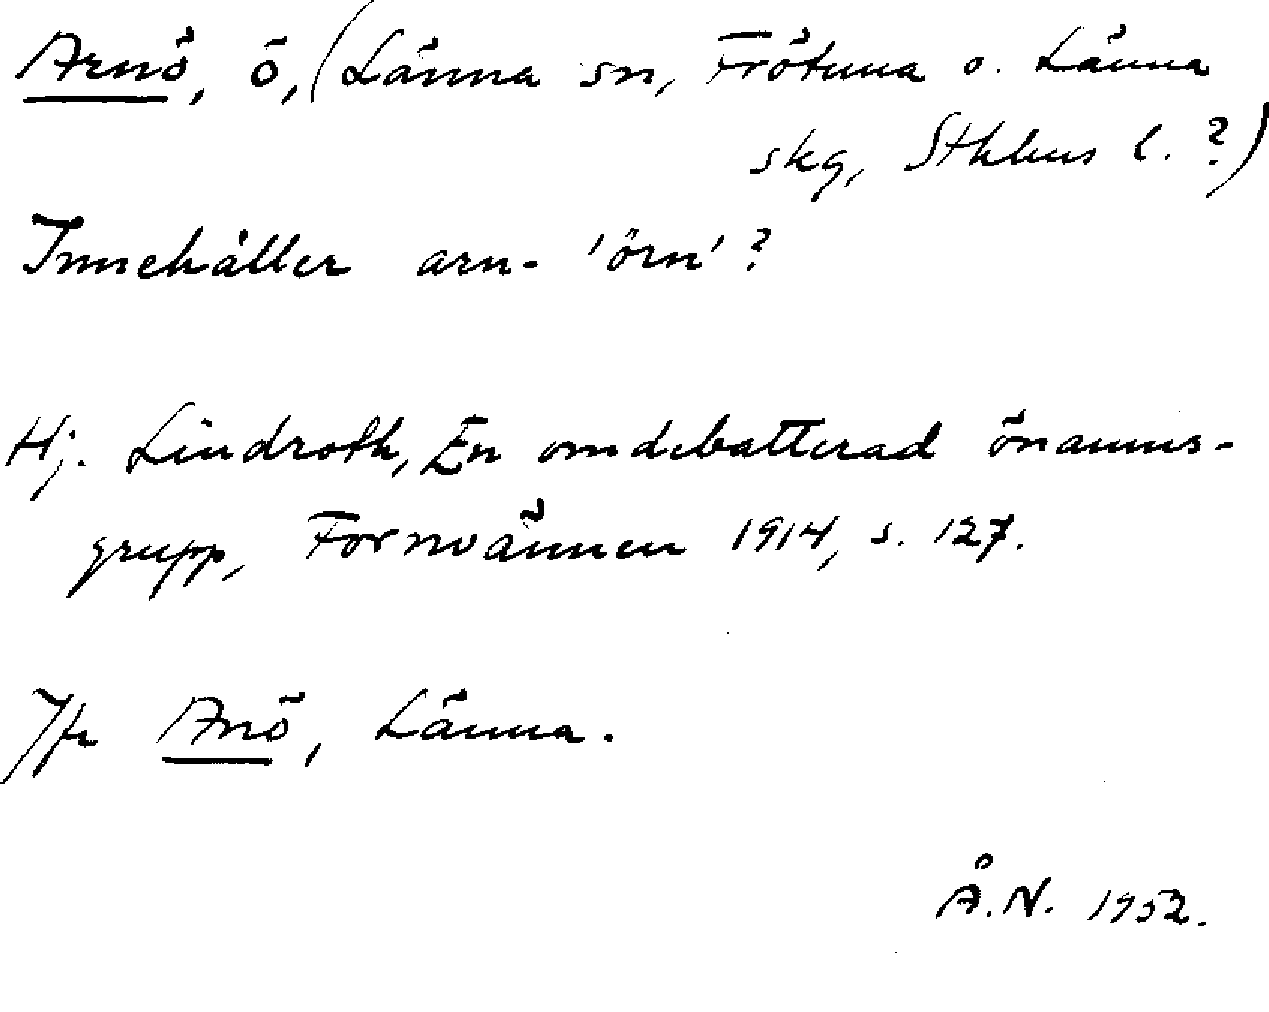 Arnö, ö, (Länna sn, Frötuna o. Länna
skg, Sthlms l. ?)
Innehåller arn- 'örn' ?
Hj. Lindroth, En omdebatterad önamns-
grupp, Fornvännen 1914, s. 127.
Jfr Anö, Länna.
Å.N. 1952.